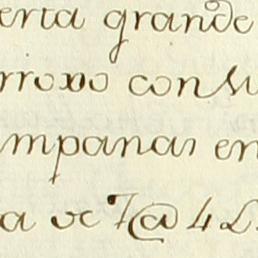 erta grande
rroxo con su
mpanas en
a oc 7@ 4 L.